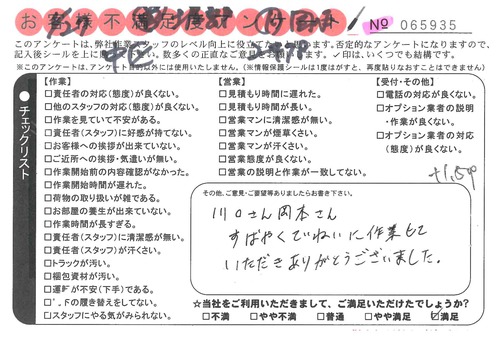 お客様不満足度アンケート
No 065935
このアンケートは、弊社作業スタッフのレベル向上に役立てたいと思います。否定的なアンケートになりますので、
記入後シールを上に貼ってください。数多くの正直なご意見をお願いします。✓印は、いくつでも結構です。
※このアンケートは、アンケート目的以外には使用いたしません。(※情報保護シールは1度はがすと、再度貼りなおすことはできません)
チェックリスト
【作業】
□責任者の対応(態度)が良くない。
□他のスタッフの対応(態度)が良くない。
□作業を見ていて不安がある。
□責任者(スタッフ)に好感が持てない。
□お客様への挨拶が出来ていない。
□ご近所への挨拶・気遣いが無い。
□作業開始前の内容確認がなかった。
□作業開始時間が遅れた。
□荷物の取り扱いが雑である。
□お部屋の養生が出来ていない。
□作業時間が長すぎる。
□責任者(スタッフ)に清潔感が無い。
□責任者(スタッフ)が汗くさい。
□トラックが汚い。
□梱包資材が汚い。
□運転が不安(下手)である。
の履き替えをしてない。
□スタッフにやる気がみられない。
【営業】
□見積もり時間に遅れた。
□見積もり時間が長い。
□営業マンに清潔感が無い。
□営業マンが煙草くさい。
□営業マンが汗くさい。
□営業態度が良くない。
□営業の説明と作業が一致してない。
【受付・その他】
□電話の対応が良くない。
□オプション業者の説明
・作業が良くない。
□オプション業者の対応
(態度)が良くない。
その他、ご意見・ご要望等ありましたらお書き下さい。
川口さん岡本さん
すばやくていねいに作業して
いただきありがとうございました。
☆当社をご利用いただきまして、ご満足いただけたでしょうか?
□不満 □やや不満 □普通 □やや満足 ☑満足